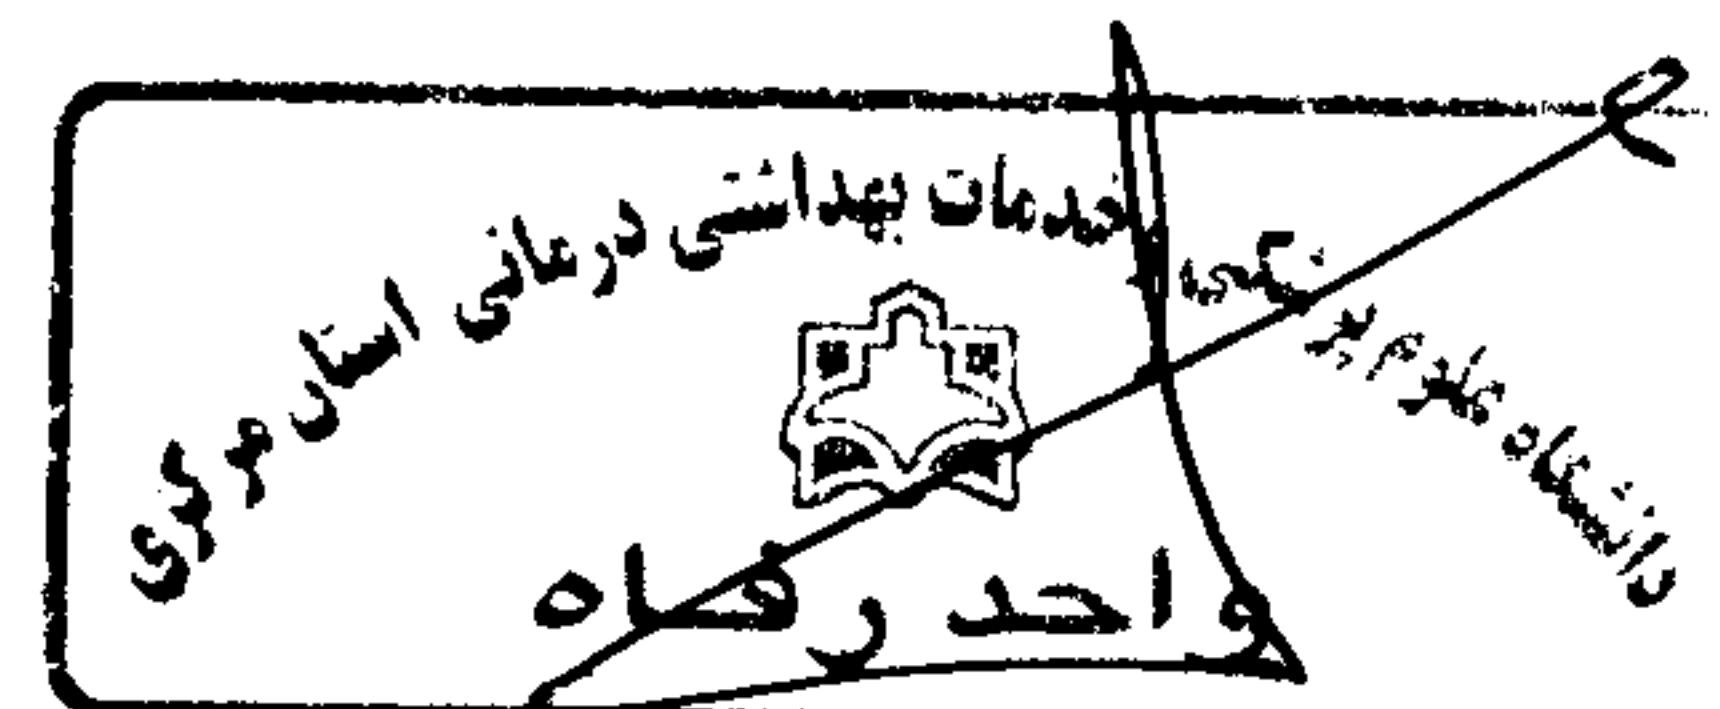 دانشگاه علوم پزشکی و خدمات بهداشتی درمانی استان مرکزی
واحد رفاه